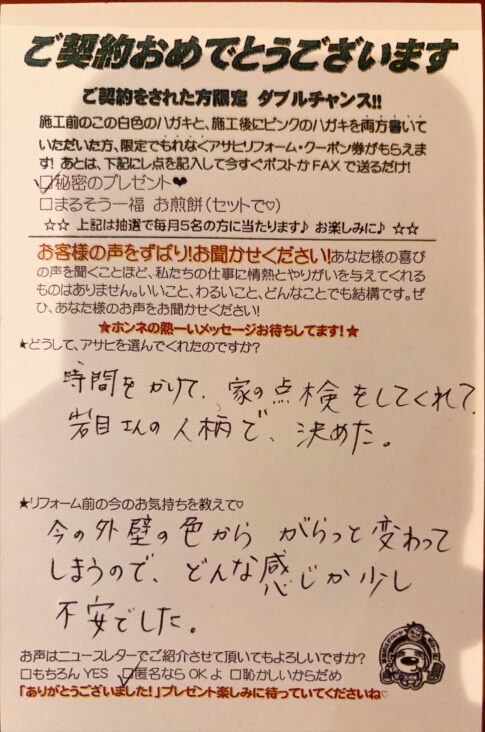 ご契約おめでとうございます
ご契約をされた方限定 ダブルチャンス!!
施工前のこの白色のハガキと、施工後にピンクのハガキを両方書いて
いただいた方、限定でもれなくアサヒリフォーム・クーポン券がもらえま
す! あとは、下記にレ点を記入して今すぐポストかFAXで送るだけ!
☑秘密のプレゼント❤
□まるそう一福 お煎餅(セットで♡)
☆☆ 上記は抽選で毎月5名の方に当たります♪ お楽しみに♪ ☆☆
お客様の声をずばり!お聞かせください!あなた様の喜び
の声を聞くことほど、私たちの仕事に情熱とやりがいを与えてくれる
ものはありません。いいこと、わるいこと、どんなことでも結構です。ぜ
ひ、あなた様のお声をお聞かせください!
★ホンネの熱ーいメッセージお待ちしてます!★
★どうして、アサヒを選んでくれたのですか?
時間をかけて、家の点検をしてくれて、
岩目さんの人柄で、決めた。
★リフォーム前の今のお気持ちを教えて♡
今の外壁の色から がらっと変わって
しまうので、どんな感じか少し
不安でした。
お声はニュースレターでご紹介させて頂いてもよろしいですか?
□もちろん YES ☑匿名なら OK よ □恥かしいからだめ
「ありがとうございました!」プレゼント楽しみに待っていてくださいね♡